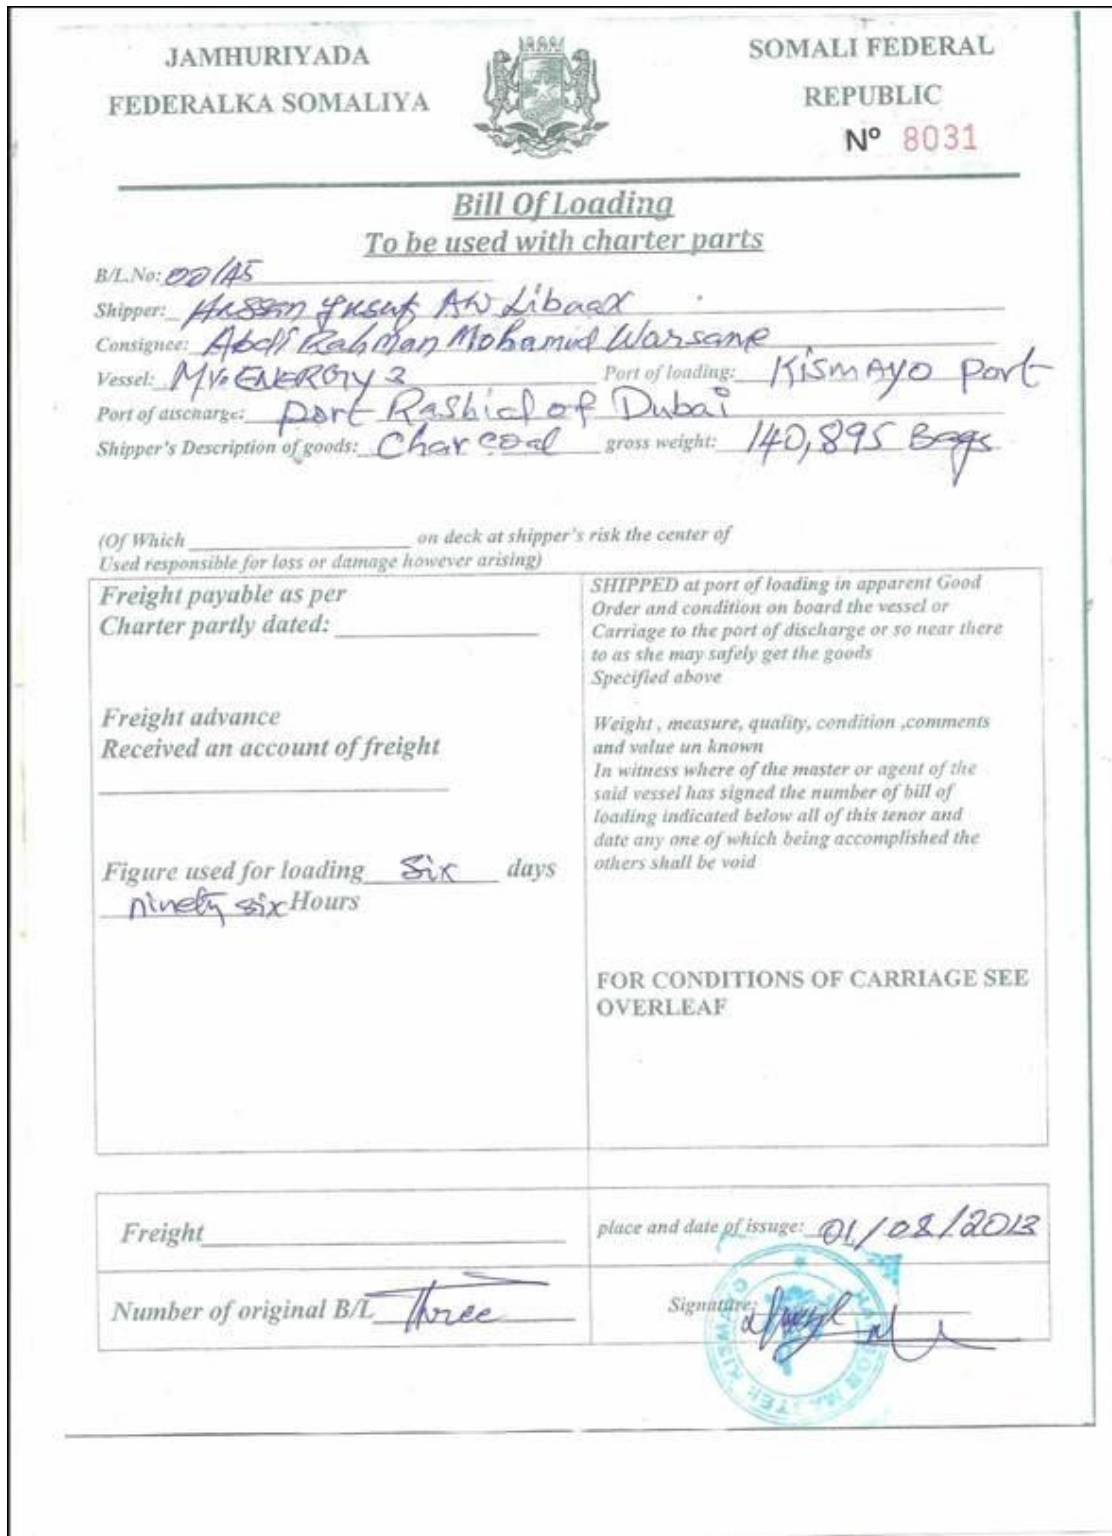 JAMHURIYADA
FEDERALKA SOMALIYA
SOMALI FEDERAL
REPUBLIC
Nº 8031
Bill Of Loading
To be used with charter parts
B/L.No: 00/A5
Shipper: Hassan Yusuf Aw Libaax
Consignee: Abdi Rahman Mohamid Warsame
Vessel: MV. ENERGY 3 Port of loading: KiSMAYO port
Port of discharge: port Rashid of Dubai
Shipper's Description of goods: Charcoal gross weight: 140,895 Bags
(Of Which on deck at shipper's risk the center of
Used responsible for loss or damage however arising)
Freight payable as per
Charter partly dated:
Freight advance
Received an account of freight
Figure used for loading Six days
ninety six Hours
SHIPPED at port of loading in apparent Good
Order and condition on board the vessel or
Carriage to the port of discharge or so near there
to as she may safely get the goods
Specified above
Weight , measure, quality, condition ,comments
and value un known
In witness where of the master or agent of the
said vessel has signed the number of bill of
loading indicated below all of this tenor and
date any one of which being accomplished the
others shall be void
FOR CONDITIONS OF CARRIAGE SEE
OVERLEAF
Freight
place and date of issuge: 01/08/2013
Number of original B/L Three
Signature: